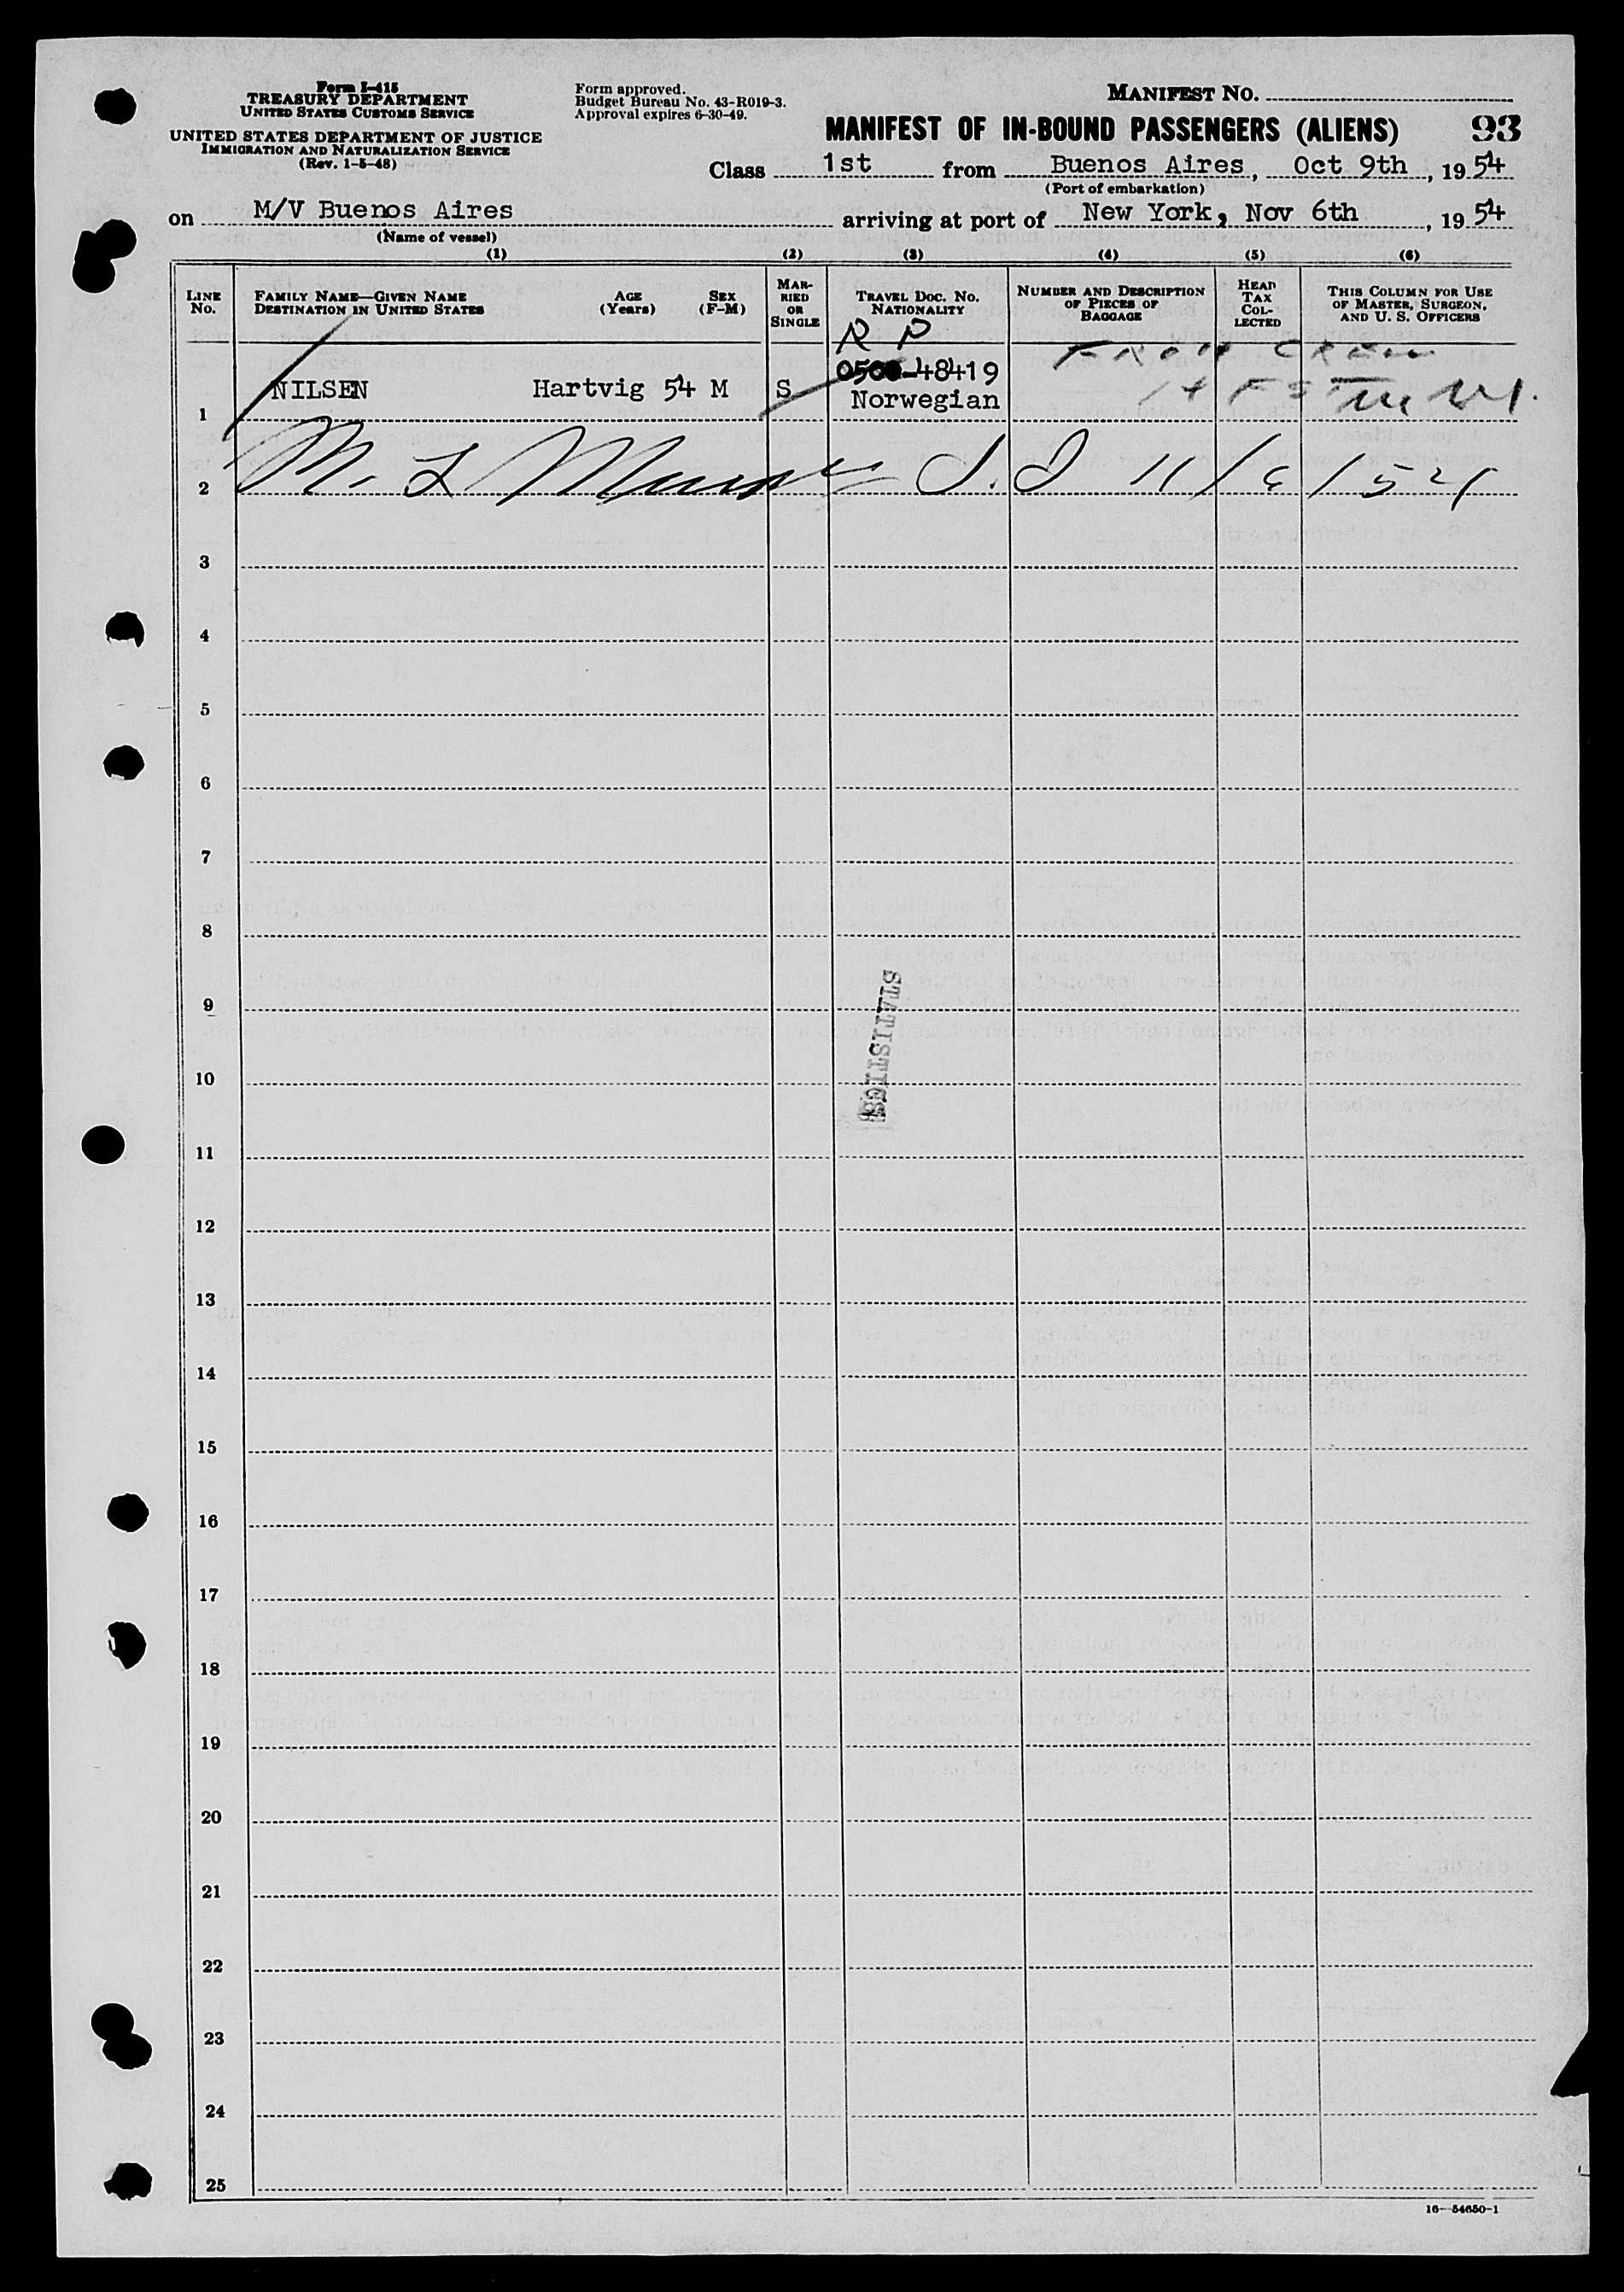 Form I-415
TREASURY DEPARTMENT
UNITED STATES CUSTOMS SERVICE
UNITED STATES DEPARTMENT OF JUSTICE
IMMIGRATION AND NATURALIZATION SERVICE
(Rev. 1-5-48)
Form approved.
Budget Bureau No. 43-R019-3.
Approval expires 6-30-49.
MANIFEST NO.
MANIFEST OF IN-BOUND PASSENGERS (ALIENS) 93
Class 1st from Buenos Aires, Oct 9th, 1954
(Port of embarkation)
on M/V Buenos Aires arriving at port of New York, Nov 6th, 1954
(Name of vessel)
(1) (2) (3) (4) (5) (6)
LINE NO.
FAMILY NAME—GIVEN NAME
DESTINATION IN UNITED STATES
AGE (Years)
SEX (F-M)
MARRIED OR SINGLE
TRAVEL DOC. NO.
NATIONALITY
NUMBER AND DESCRIPTION OF PIECES OF BAGGAGE
HEAD TAX COLLECTED
THIS COLUMN FOR USE OF MASTER, SURGEON, AND U. S. OFFICERS
R P
FROM CREW
1 NILSEN Hartvig 54 M S 48419
Norwegian
2 M. L 11/6/54
3
4
5
6
7
8
9
STATISTICS
10
11
12
13
14
15
16
17
18
19
20
21
22
23
24
25
16-54650-1